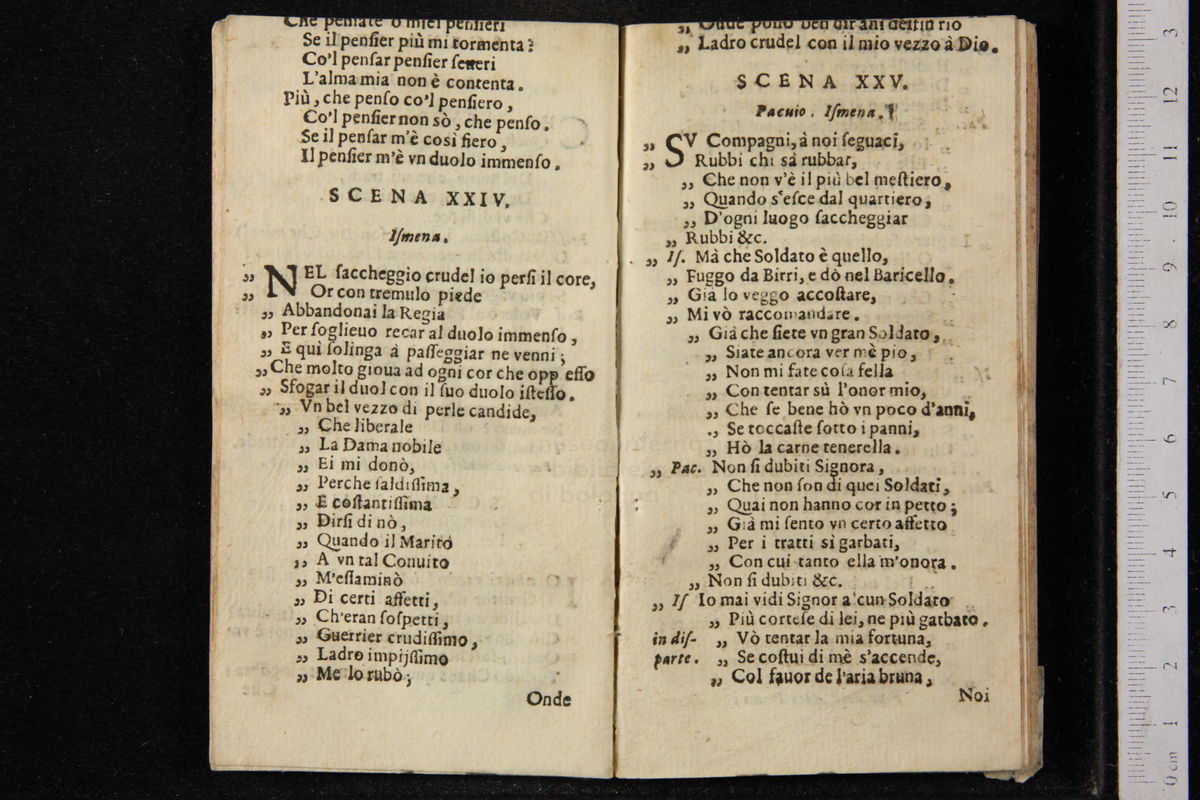 Che pensate o miei pensieri
Se il pensier più mi tormenta?
Co'l pensar pensier seueri
L'alma mia non è contenta.
Più, che penso co'l pensiero,
Co'l pensier non sò, che penso.
Se il pensar m'è così fiero,
Il pensier m'è vn duolo immenso.
SCENA XXIV.
Ismena.
„ NEL saccheggio crudel io persi il core,
„ Or con tremulo piede
„ Abbandonai la Regia
„ Per soglieuo recar al duolo immenso,
„ E quì solinga à passeggiar ne venni;
„ Che molto gioua ad ogni cor che opp esso
„ Sfogar il duol con il suo duolo istesso.
„ Vn bel vezzo di perle candide,
„ Che liberale
„ La Dama nobile
„ Ei mi donò,
„ Perche saldissima,
„ E costantissima
„ Dirsi di nò,
„ Quando il Marito
„ A vn tal Conuito
„ M'esaminò
„ Di certi affetti,
„ Ch'eran sospetti,
„ Guerrier crudissimo,
„ Ladro impijssimo
„ Me lo rubò;
Onde
„ Onde posso ben dir
„ Ladro crudel con il mio vezzo à Dio.
SCENA XXV.
Pacuio. Ismena.
„ SV Compagni, à noi seguaci,
„ Rubbi chi sà rubbar,
„ Che non v'è il più bel mestiero,
„ Quando s'esce dal quartiero,
„ D'ogni luogo saccheggiar
„ Rubbi &c.
„ Is. Mà che Soldato è quello,
„ Fuggo da Birri, e dò nel Baricello.
„ Già lo veggo accostare,
„ Mi vò raccomandare.
„ Già che siete vn gran Soldato,
„ Siate ancora ver mè pio,
„ Non mi fate cosa fella
„ Con tentar sù l'onor mio,
„ Che se bene hò vn poco d'anni,
„ Se toccaste sotto i panni,
„ Hò la carne tenerella.
„ Pac. Non si dubiti Signora,
„ Che non son di quei Soldati,
„ Quai non hanno cor in petto;
„ Già mi sento vn certo affetto
„ Per i tratti sì garbati,
„ Con cui tanto ella m'onora.
„ Non si dubiti &c.
„ Is Io mai vidi Signor a'cun Soldato
„ Più cortese di lei, ne più garbato.
in dis- „ Vò tentar la mia fortuna,
parte. „ Se costui di mè s'accende,
„ Col fauor de l'aria bruna,
Noi
0 cm 1 2 3 4 5 6 7 8 9 10 11 12 3